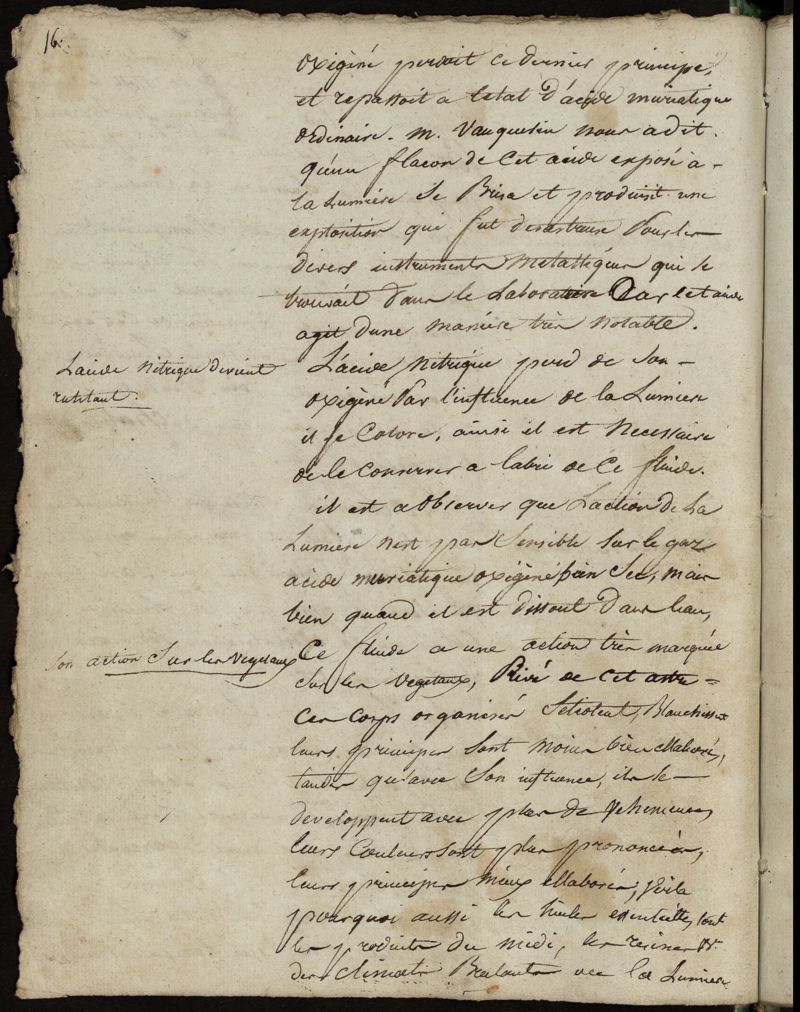 16.
oxigéné perdoit ce dernier principe,
et repassoit a letat d'acide muriatique
ordinaire. m. Vauquelin nous a dit
qu'un flacon de cet acide exposé a
la Lumiere se Brisa et produisit une
explosition qui fut desastreuse Pour les
divers instruments Metalliques qui se
trouvait dans le Laboratoire Car cet acide
agit dune maniere très notable.
Lacide Nitrique devient
rutilant.
L'acide Nitrique perd de son
oxigéné Par l'influence de la Lumiere
il se Colore, ainsi il est Necessaire
de le Conserver a labri de Ce fluide.
il est a observer que Laction de La
Lumiere nest pas Sensible sur le gaz
acide muriatique oxigéné bien Sec, mais
bien quand il est dissout dans leau,
Son action Sur les Vegetaux
Ce fluide a une action très marquée
sur les Vegetaux, Privé de cet astre
Ces Corps organisés Setiolent, Blanchissent
leurs principes Sont moins bien Elaborés,
tandis qu'avec Son influence, ils se
developpent avec plus de Vehemence,
leurs Couleurs sont plus prononcées,
leurs principes mieux Elaborés, voila
pourquoi aussi les huiles essentielles, sont
les produits du midi, les resines &.
des Climats Brulants ou la Lumiere